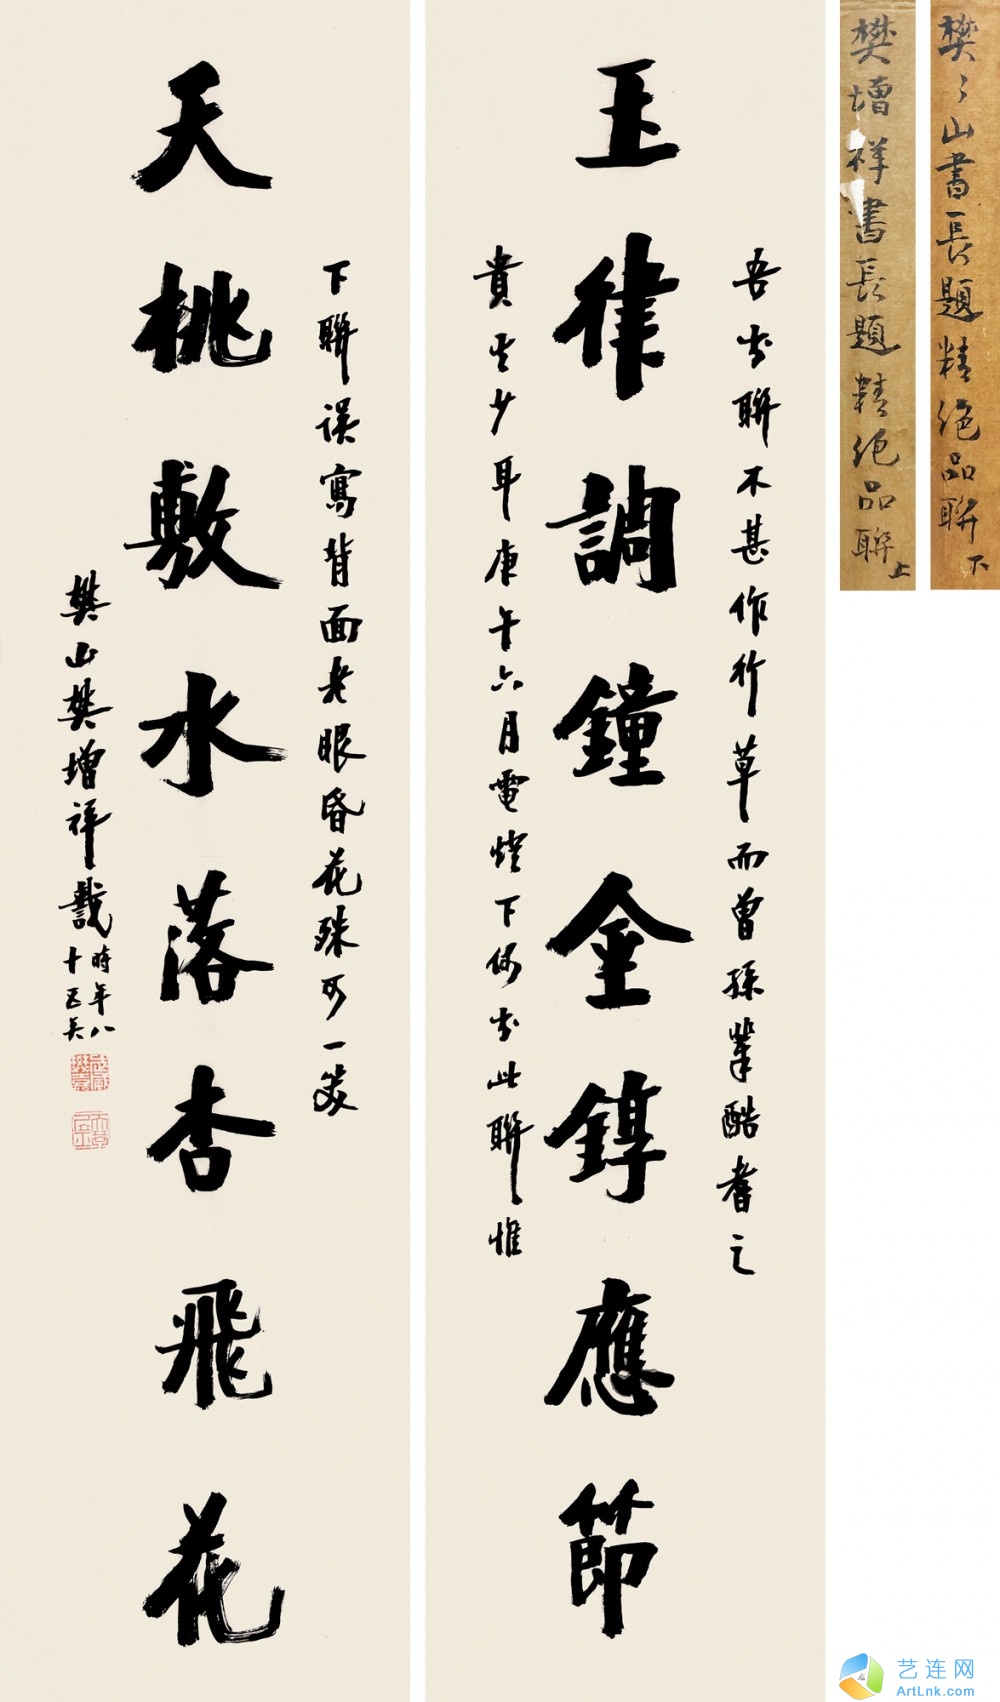 樊山書長題精絕品聯 下
樊增祥書長題精絕品聯 上
吾書聯不甚作行草而曾孫輩酷耆之
玉律調鐘金錞應節
貴其少耳庚午六月電燈下偶書此聯惟
下聯誤寫背面老眼昏花殊可一笑
天桃敷水落杏飛花
樊山樊增祥識
時年八
十五矣
艺连网
ArtLnk.com